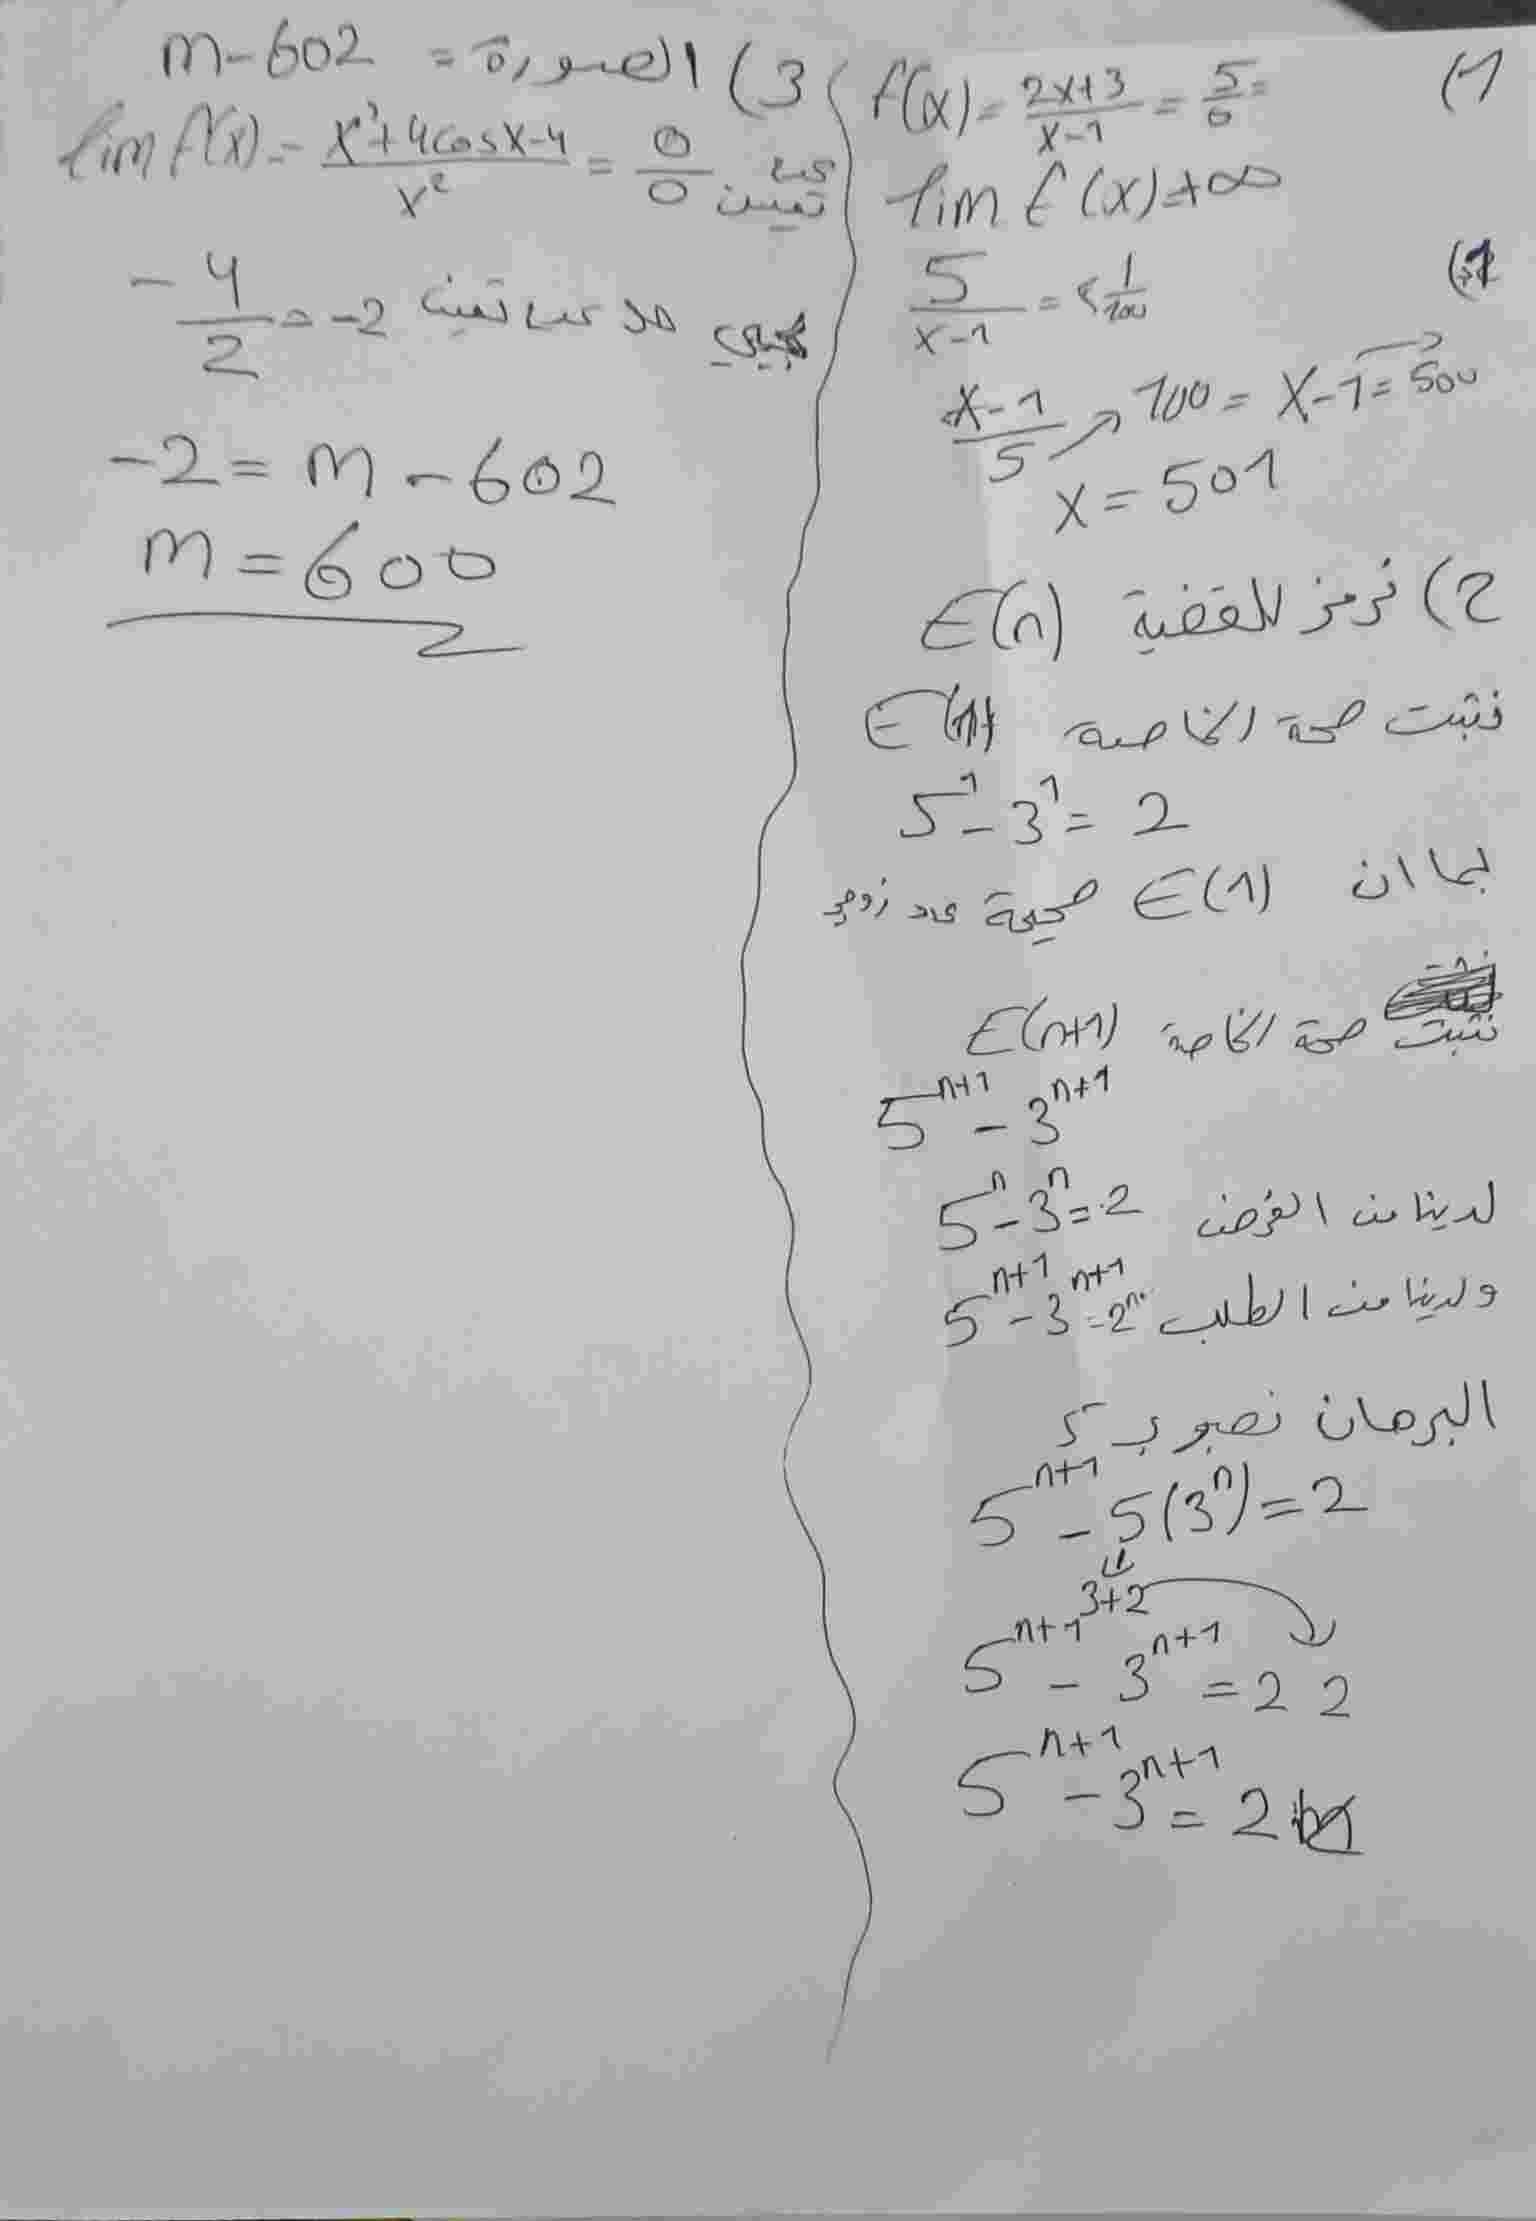 1) f(x) = \frac{2x+3}{x-1} = \frac{5}{0} =
lim f(x) = +∞
\frac{5}{x-1} = < \frac{1}{100}
\frac{x-1}{5} ↗ 100 = x-1 = 500
x = 501
2) نرمز للقضية E(n)
نثبت صحة الخاصة E(1)
5^1 - 3^1 = 2
بما ان E(1) صحيحة عدد زوجي
نثبت صحة الخاصة E(n+1)
5^{n+1} - 3^{n+1}
لدينا من الفرض 5^n - 3^n = 2
ولدينا من الطلب 5^{n+1} - 3^{n+1} = 2
البرهان نضرب ب 5
5^{n+1} - 5(3^n) = 2
3+2
5^{n+1} - 3^{n+1} = 2 2
5^{n+1} - 3^{n+1} = 2
3) الصورة = m-602
lim f(x) = \frac{x^2+4cosx-4}{x^2} = \frac{0}{0} عدم تعيين
عدم تعيين -\frac{4}{2} = -2
-2 = m - 602
m = 600